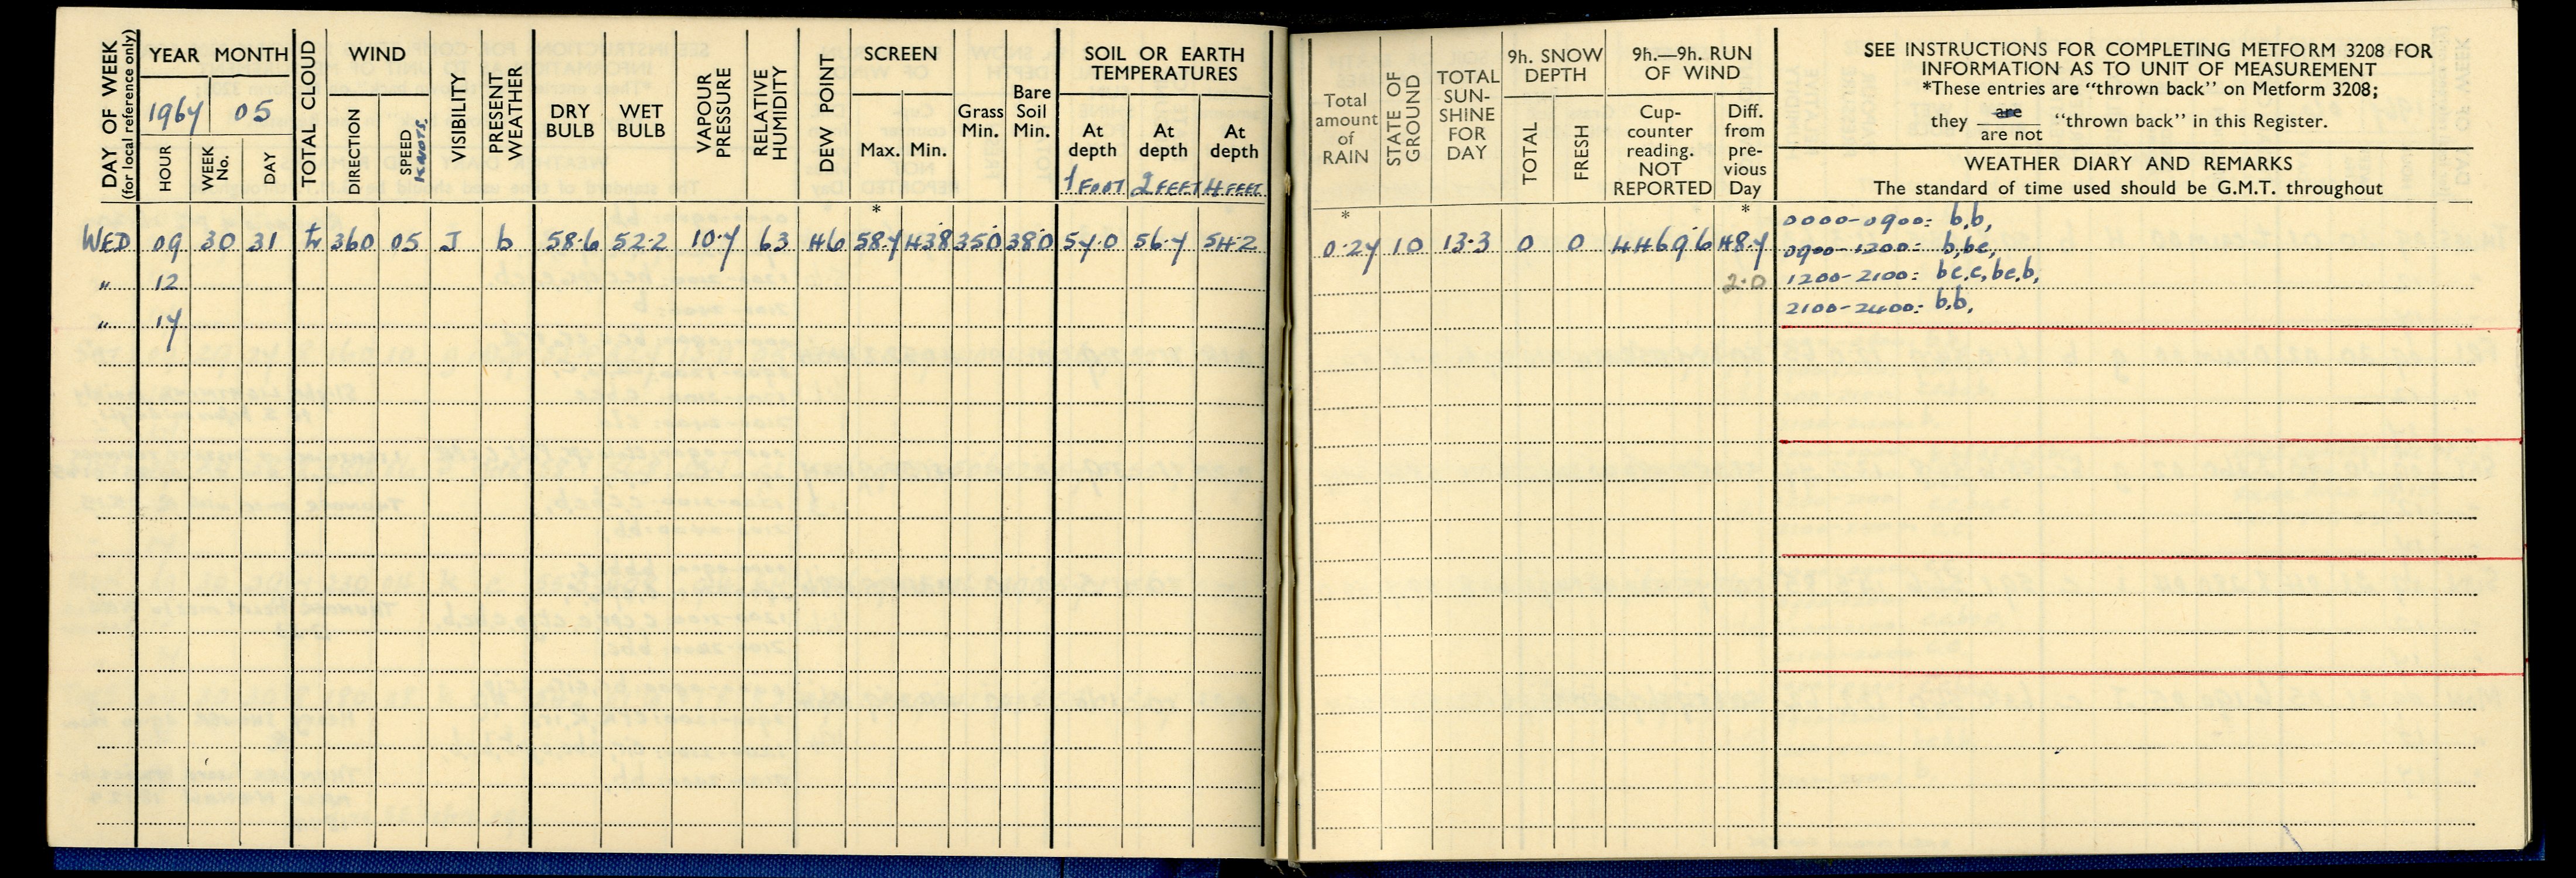 DAY OF WEEK
(for local reference only)
YEAR MONTH
1967 05
HOUR
WEEK No.
DAY
TOTAL CLOUD
WIND
DIRECTION
SPEED
KNOTS.
VISIBILITY
PRESENT WEATHER
DRY BULB
WET BULB
VAPOUR PRESSURE
RELATIVE HUMIDITY
DEW POINT
SCREEN
Max. Min.
Grass Min.
Bare Soil Min.
SOIL OR EARTH
TEMPERATURES
At depth
1 FOOT
At depth
2 FEET
At depth
4 FEET
*
WED 09 30 31 360 05 J b 58·6 52·2 10·7 63 46 58·7 43·8 35·0 38·0 57·0 56·7 54·2
" 12
" 17
Total amount of RAIN
STATE OF GROUND
TOTAL SUN-SHINE FOR DAY
9h. SNOW DEPTH
TOTAL
FRESH
9h.—9h. RUN OF WIND
Cup-counter reading. NOT REPORTED
Diff. from pre-vious Day
SEE INSTRUCTIONS FOR COMPLETING METFORM 3208 FOR
INFORMATION AS TO UNIT OF MEASUREMENT
*These entries are "thrown back" on Metform 3208;
they are / are not "thrown back" in this Register.
WEATHER DIARY AND REMARKS
The standard of time used should be G.M.T. throughout
* *
0·27 10 13·3 0 0 4469·6 48·7
2·0
0000-0900: b,b,
0900-1200: b,bc,
1200-2100: bc,c,bc,b,
2100-2400: b,b,